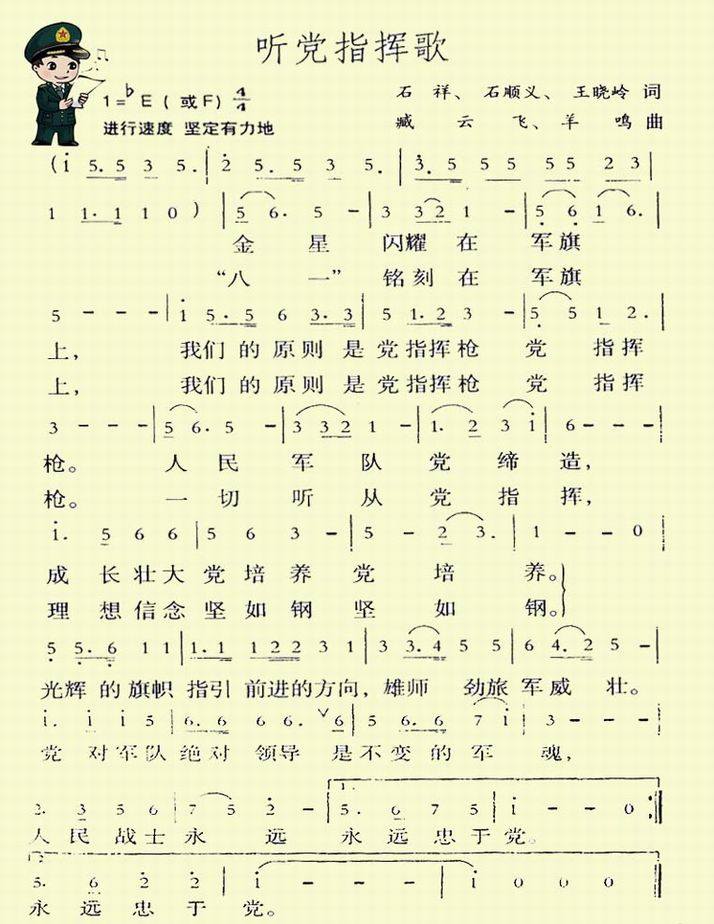 听党指挥歌
1=♭E（或F）4/4
石祥、石顺义、王晓岭 词
进行速度 坚定有力地
臧云飞、羊鸣 曲
(i 5.5 3 5.|2 5.5 3 5.|3.5 5 5 5 5 2 3|
1 1·1 1 0)|5 6· 5 -|3 3 2 1 -|5 6 1 6.|
金 星 闪耀 在 军旗
“八 一” 铭刻 在 军旗
5 - - -|i 5·5 6 3·3|5 1·2 3 -|5 5 1 2.|
上， 我们 的 原则 是 党 指挥 枪 党 指挥
上， 我们 的 原则 是 党 指挥 枪 党 指挥
3 - - -|5 6· 5 -|3 3 2 1 -|1· 2 3 i|6 - - -|
枪。 人 民 军 队 党 缔 造，
枪。 一 切 听 从 党 指 挥，
i· 5 6 6|5 6 3 -|5 - 2 3.|1 - - 0|
成 长 壮 大 党 培 养 党 培 养。
理 想 信 念 坚 如 钢 坚 如 钢。
5 5·6 1 1|1·1 1 2 2 3 1|3 3·4 5 5|6 4·2 5 -|
光辉 的 旗帜 指引 前进的方向，雄师 劲旅 军威 壮。
i· i i 5|6·6 6 6· ∨ 6|5 6·6 7 i|3 - - -|
党 对 军 队 绝对 领导 是 不变 的 军 魂，
1.
2· 3 5 6|7 5 2 -|5· 6 7 5|i - - 0:‖
人 民 战 士 永 远 永 远 忠 于 党。
2.
5· 6 2 2|i - - -|i 0 0 0‖
永 远 忠 于 党。